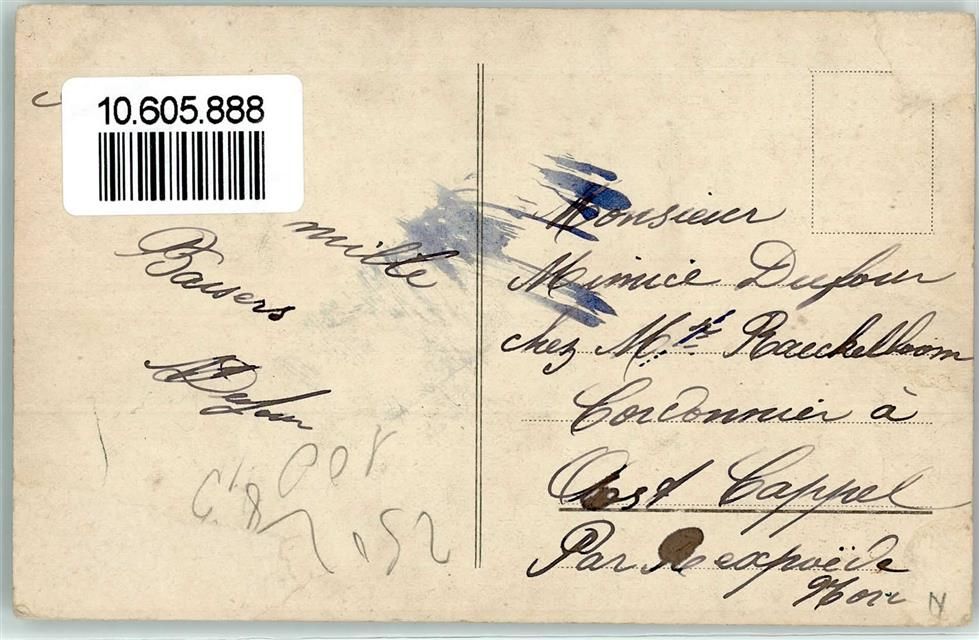 10.605.888
mille
Baisers
Dufour
Monsieur
Mimice Dufour
chez Mr Raeckelboom
Cordonnier à
Oost Cappel
Par Rexpoëde
Nord
N